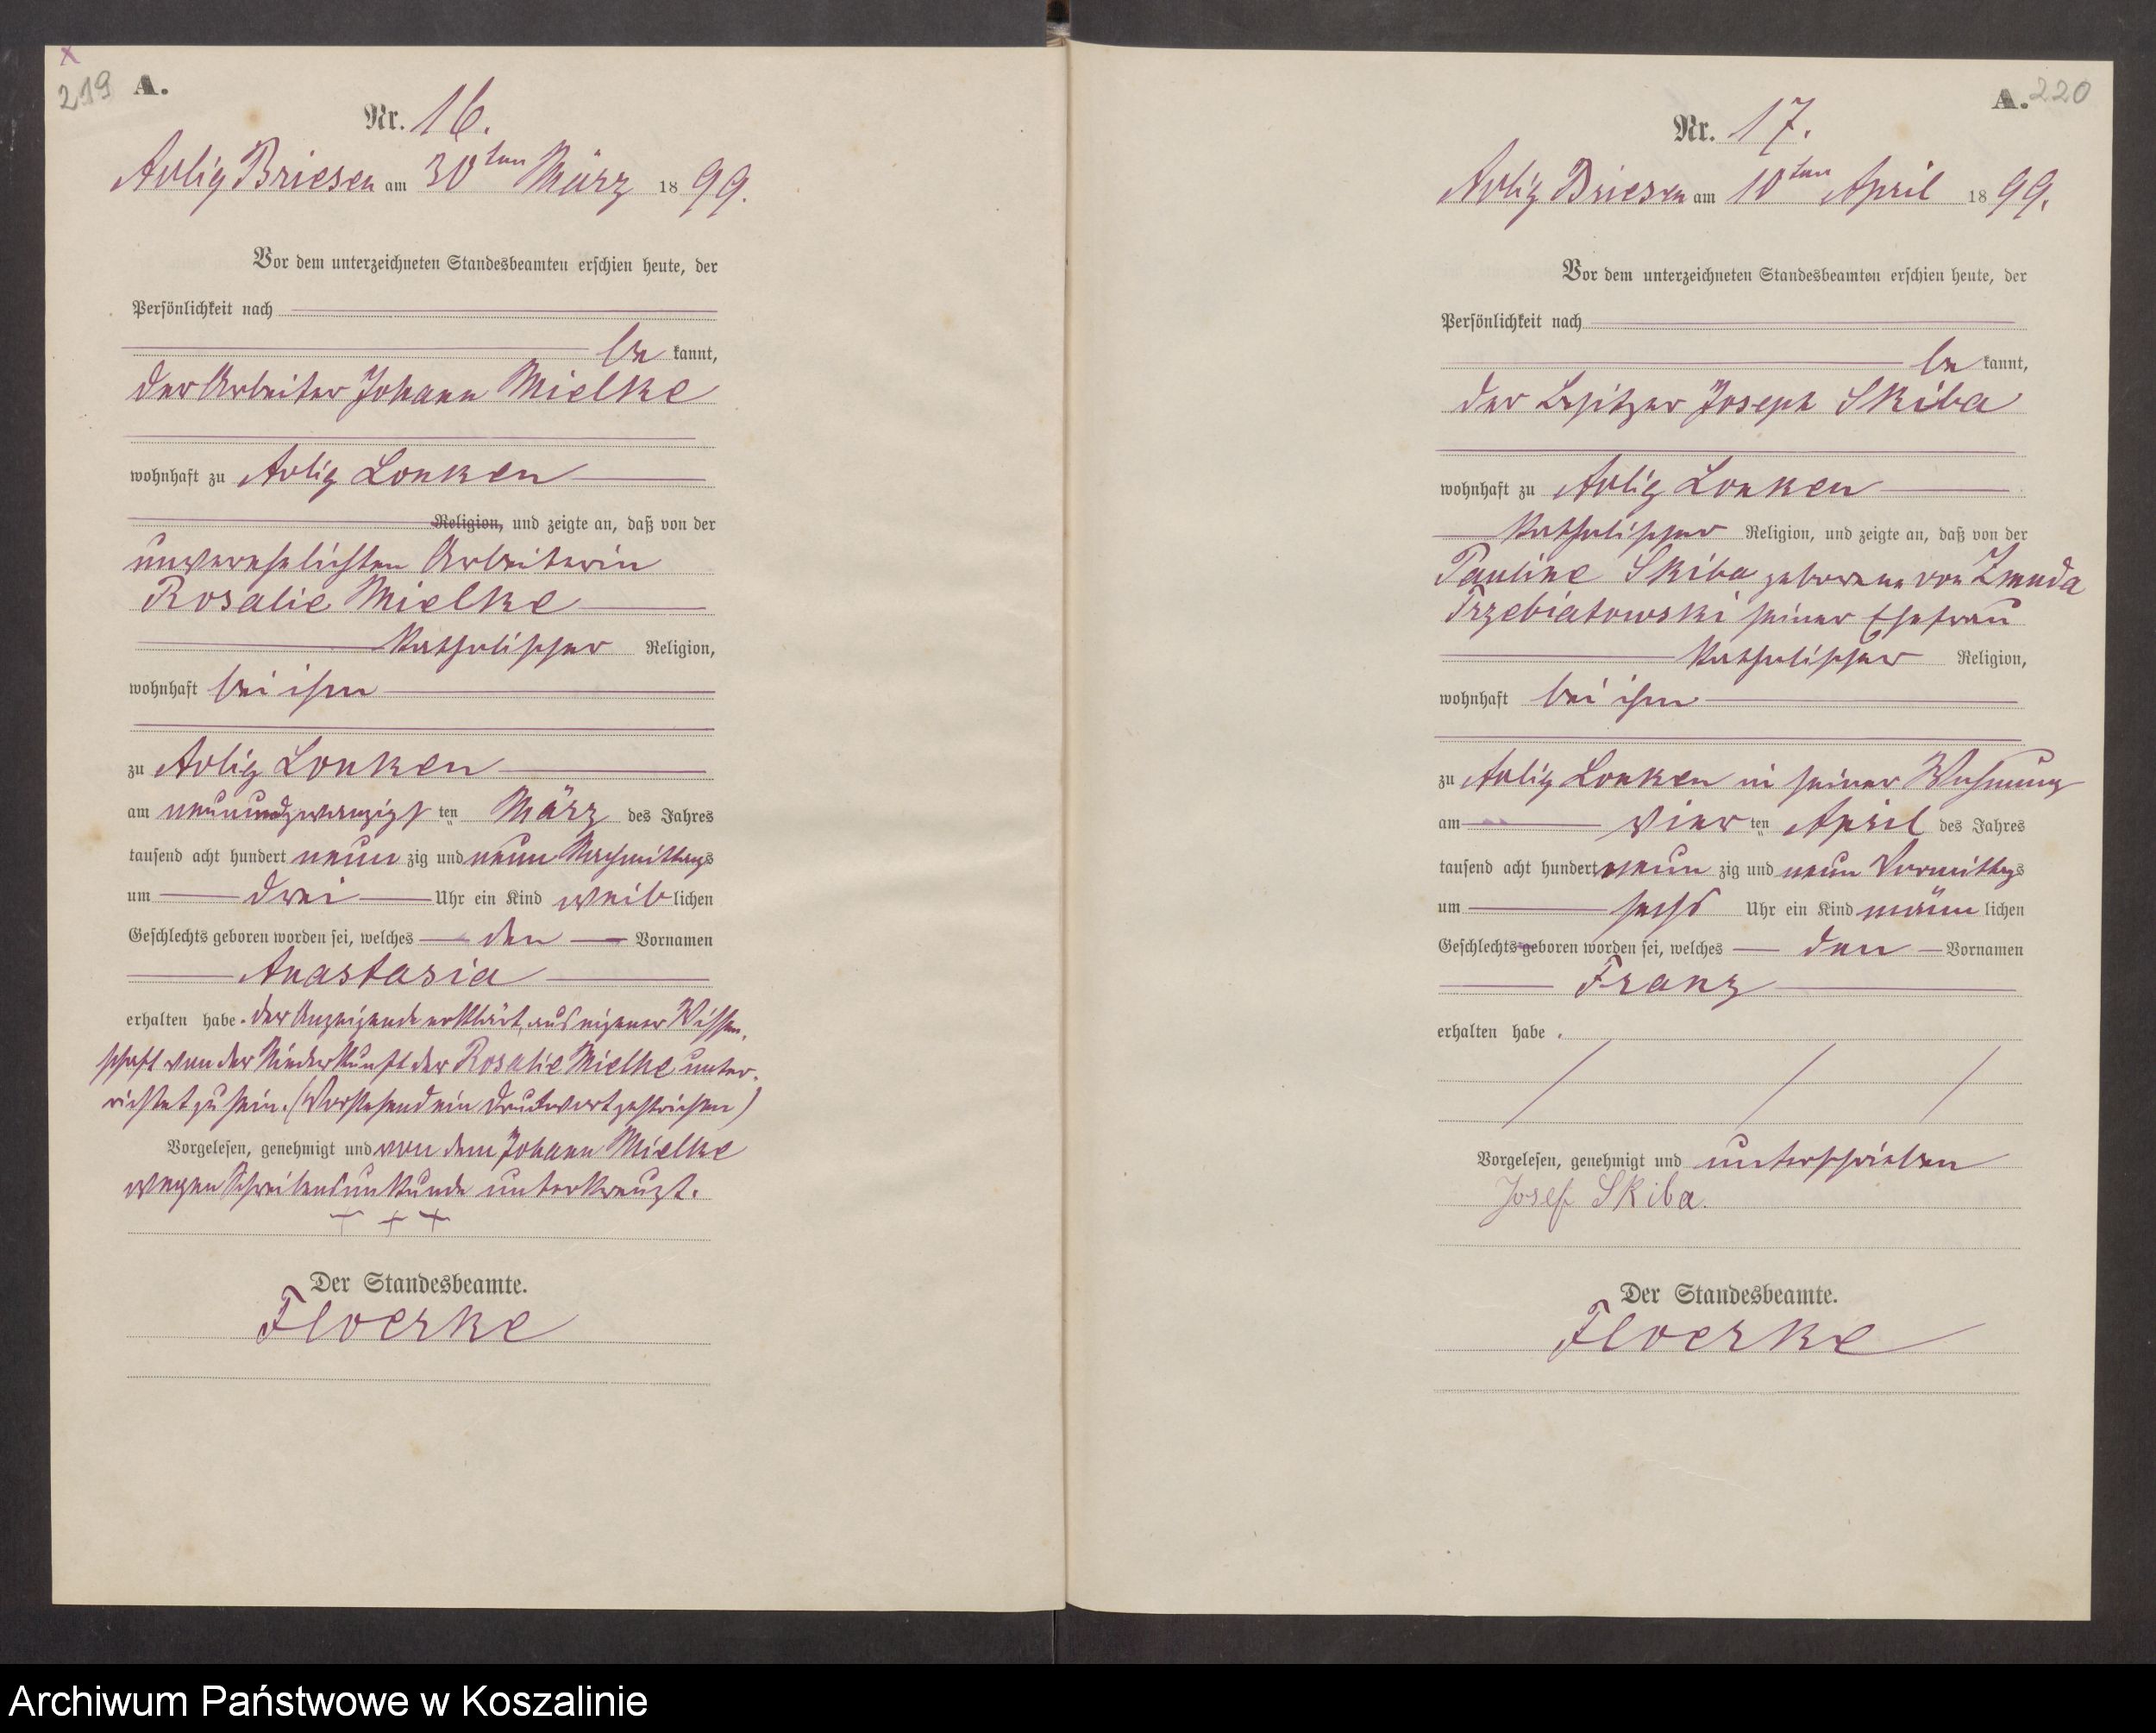 219 A.
Nr. 16.
Adlig Briesen am 30ten März 1899.
Vor dem unterzeichneten Standesbeamten erschien heute, der
Persönlichkeit nach
bekannt,
der Arbeiter Johann Mielke
wohnhaft zu Adlig Lonken
Religion, und zeigte an, daß von der
unverehelichten Arbeiterin
Rosalie Mielke
katholischer Religion,
wohnhaft bei ihm
zu Adlig Lonken
am neunundzwanzigsten März des Jahres
tausend acht hundert neunzig und neun Nachmittags
um drei Uhr ein Kind weiblichen
Geschlechts geboren worden sei, welches den Vornamen
Anastasia
erhalten habe. Der Anzeigende erklärt, aus eigener Wissen-
schaft von der Niederkunft der Rosalie Mielke unter-
richtet zu sein. (Vorstehend ein Druckwort gestrichen)
Vorgelesen, genehmigt und von dem Johann Mielke
wegen Schreibensunkunde unterkreuzt.
+ + +
Der Standesbeamte.
Floerke
A. 220
Nr. 17.
Adlig Briesen am 10ten April 1899.
Vor dem unterzeichneten Standesbeamten erschien heute, der
Persönlichkeit nach
bekannt,
der Besitzer Joseph Skiba
wohnhaft zu Adlig Lonken
katholischer Religion, und zeigte an, daß von der
Pauline Skiba geborene von Zmuda
Trzebiatowski seiner Ehefrau
katholischer Religion,
wohnhaft bei ihm
zu Adlig Lonken in seiner Wohnung
am vierten April des Jahres
tausend acht hundert neunzig und neun Vormittags
um sechs Uhr ein Kind männlichen
Geschlechts geboren worden sei, welches den Vornamen
Franz
erhalten habe.
Vorgelesen, genehmigt und unterschrieben
Josef Skiba.
Der Standesbeamte.
Floerke
Archiwum Państwowe w Koszalinie